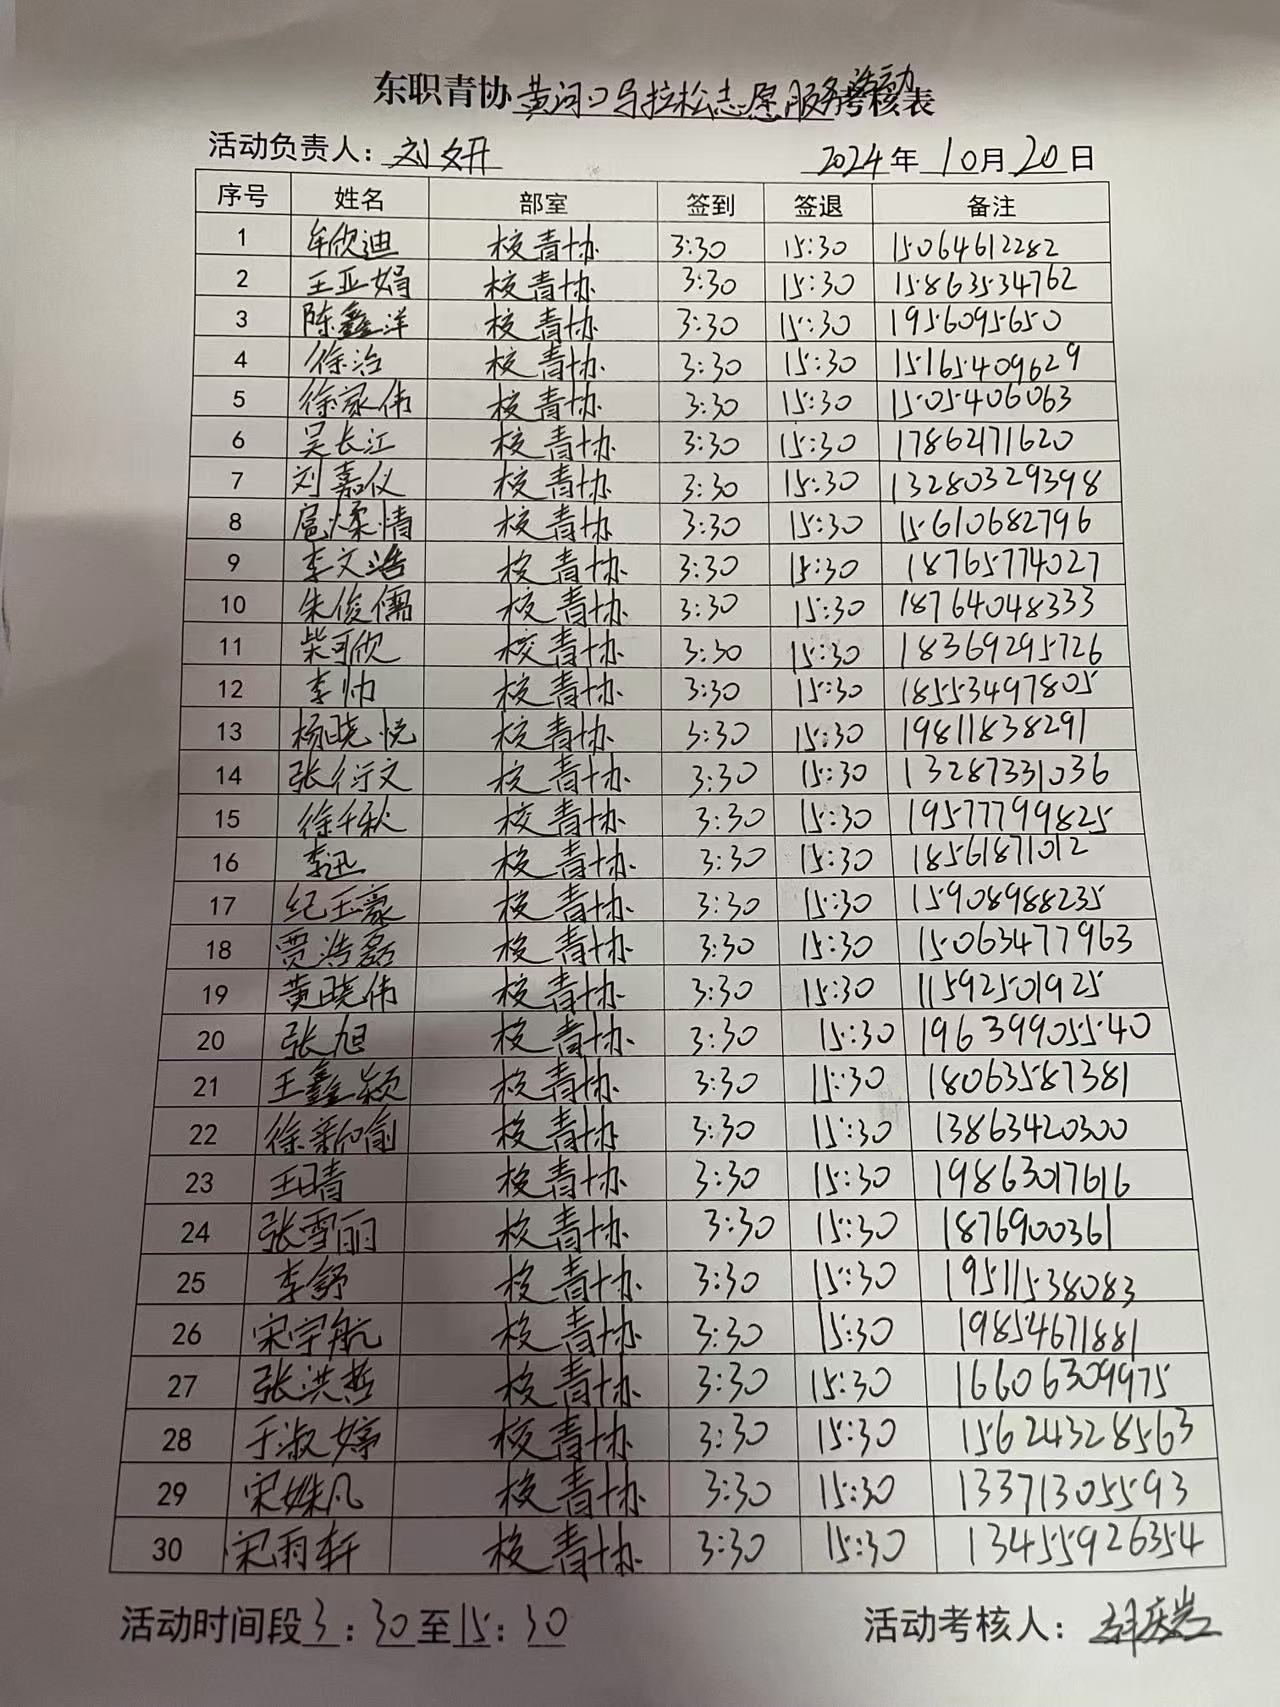 东职青协黄河口马拉松志愿服务活动考核表
活动负责人：刘妍 2024年10月20日
序号 姓名 部室 签到 签退 备注
1 牟欣迪 校青协 3:30 15:30 15064612282
2 王亚娟 校青协 3:30 15:30 15863534762
3 陈鑫洋 校青协 3:30 15:30 1956095650
4 徐治 校青协 3:30 15:30 15165409629
5 徐家伟 校青协 3:30 15:30 1505406063
6 吴长江 校青协 3:30 15:30 17862171620
7 刘嘉仪 校青协 3:30 15:30 13280329398
8 扈煣情 校青协 3:30 15:30 15610682796
9 李文浩 校青协 3:30 15:30 18765774027
10 朱俊儒 校青协 3:30 15:30 18764048333
11 柴可欣 校青协 3:30 15:30 18369295726
12 李帅 校青协 3:30 15:30 18553497805
13 杨晓悦 校青协 3:30 15:30 19811838291
14 张衍文 校青协 3:30 15:30 13287331036
15 徐千秋 校青协 3:30 15:30 19577799825
16 李迅 校青协 3:30 15:30 18561871012
17 纪玉豪 校青协 3:30 15:30 15908988235
18 贾浩磊 校青协 3:30 15:30 15063477963
19 黄晓伟 校青协 3:30 15:30 11592501925
20 张旭 校青协 3:30 15:30 19639905540
21 王鑫颖 校青协 3:30 15:30 18063587381
22 徐新愉 校青协 3:30 15:30 13863420300
23 王晴 校青协 3:30 15:30 19863017616
24 张雪丽 校青协 3:30 15:30 1876900361
25 李舒 校青协 3:30 15:30 19511538083
26 宋宇航 校青协 3:30 15:30 19854671881
27 张洪哲 校青协 3:30 15:30 16606309975
28 于淑婷 校青协 3:30 15:30 15624328563
29 宋姝凡 校青协 3:30 15:30 13371305593
30 宋雨轩 校青协 3:30 15:30 13455926354
活动时间段3：30至15：30 活动考核人：